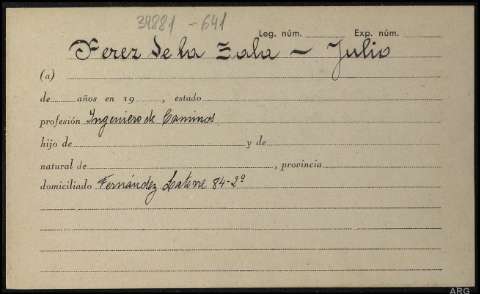 39881 - 641
Leg. núm. Exp. núm.
Perez de la Sala - Julio
(a)
de años en 19 , estado
profesión Ingeniero de Caminos
hijo de y de
natural de , provincia
domiciliado Fernández Latorre 84-2º
ARG